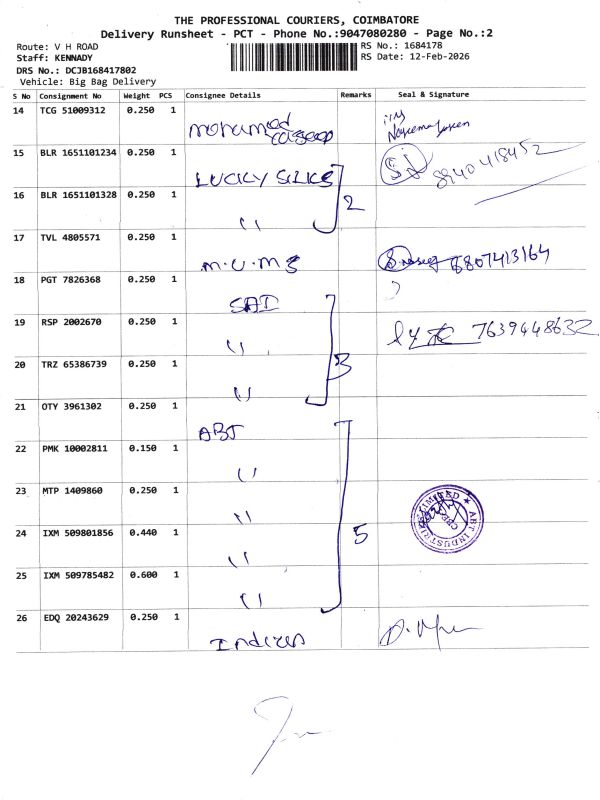 THE PROFESSIONAL COURIERS, COIMBATORE
Delivery Runsheet - PCT - Phone No.:9047080280 - Page No.:2
Route: V H ROAD
RS No.: 1684178
Staff: KENNADY
RS Date: 12-Feb-2026
DRS No.: DCJB168417802
Vehicle: Big Bag Delivery
S No Consignment No Weight PCS Consignee Details Remarks Seal & Signature
14 TCG 51009312 0.250 1 Mohamed
15 BLR 1651101234 0.250 1 LUCKY SILKS 8940418452
16 BLR 1651101328 0.250 1 " 2
17 TVL 4805571 0.250 1 M.U.M S 8807413164
18 PGT 7826368 0.250 1 SAI
19 RSP 2002670 0.250 1 " 7639448632
20 TRZ 65386739 0.250 1 " 3
21 OTY 3961302 0.250 1 ABT
22 PMK 10002811 0.150 1 "
23 MTP 1409860 0.250 1 "
24 IXM 509801856 0.440 1 " 5
ABT INDUSTRIES LIMITED
25 IXM 509785482 0.600 1 "
26 EDQ 20243629 0.250 1